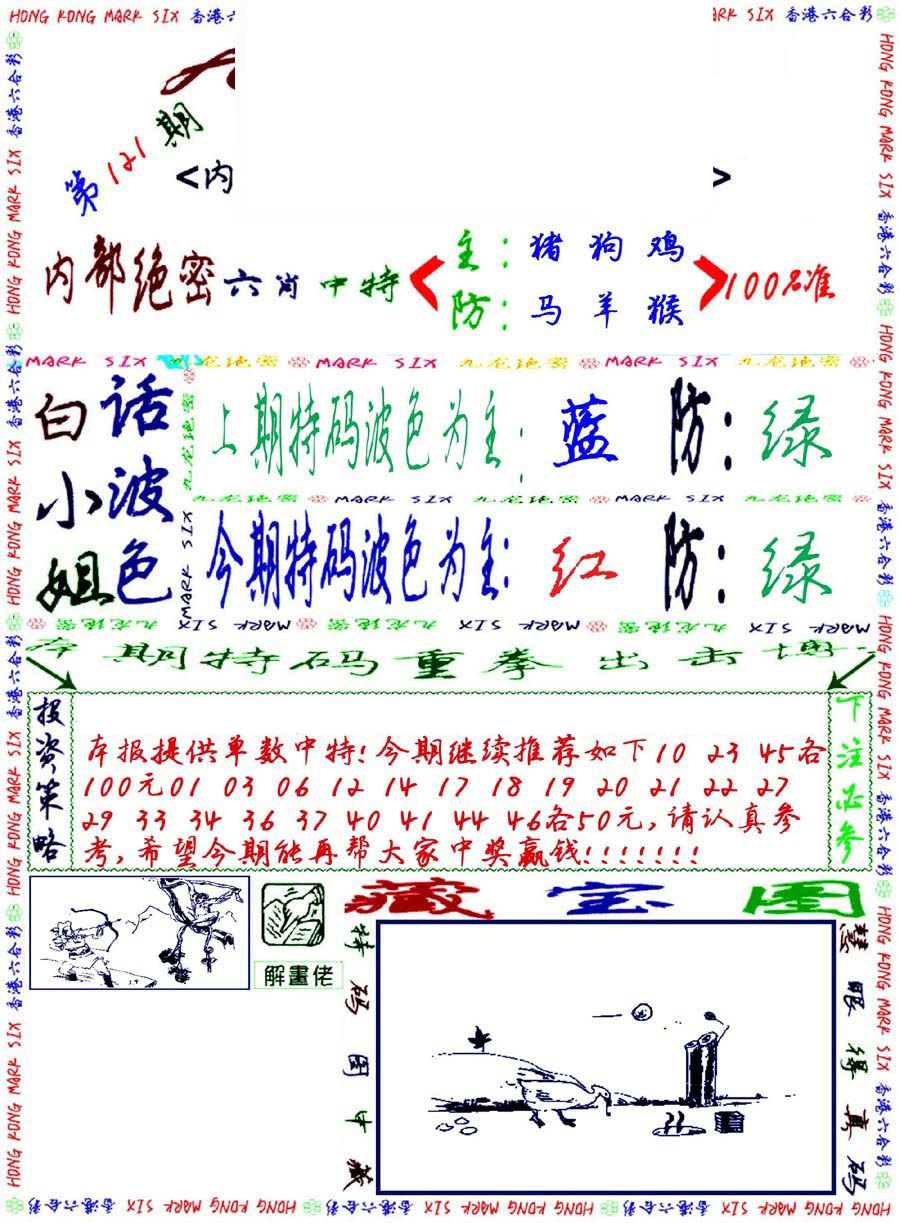 HONG KONG MARK SIX 香港六合彩
第121期
<内 >
内部绝密六肖中特
主：猪 狗 鸡
防：马 羊 猴
100%准
MARK SIX 九龙绝密 MARK SIX 九龙绝密 MARK SIX 九龙绝密
白话
小波
姐色
上期特码波色为主：蓝 防：绿
九龙绝密 MARK SIX 九龙绝密 MARK SIX 九龙绝密
今期特码波色为主：红 防：绿
九龙绝密 MARK SIX 九龙绝密 MARK SIX 九龙绝密 MARK SIX
本期特码重拳出击博
投资策略
本报提供单数中特!今期继续推荐如下10 23 45各
100元01 03 06 12 14 17 18 19 20 21 22 27
29 33 34 36 37 40 41 44 46各50元,请认真参
考,希望今期能再帮大家中奖赢钱!!!!!!!
下注必参
解畫佬
藏宝图
特码图中藏
慧眼得真码
HONG KONG MARK SIX 香港六合彩 HONG KONG MARK SIX 香港六合彩 HONG KONG MARK SIX 香港六合彩